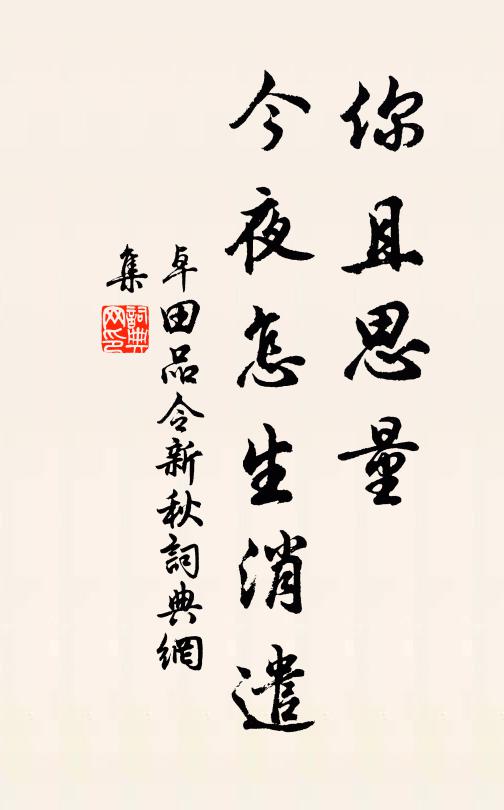 你且思量
今夜怎生消遣
卓田品令新秋詞典網
集
詞典
网印